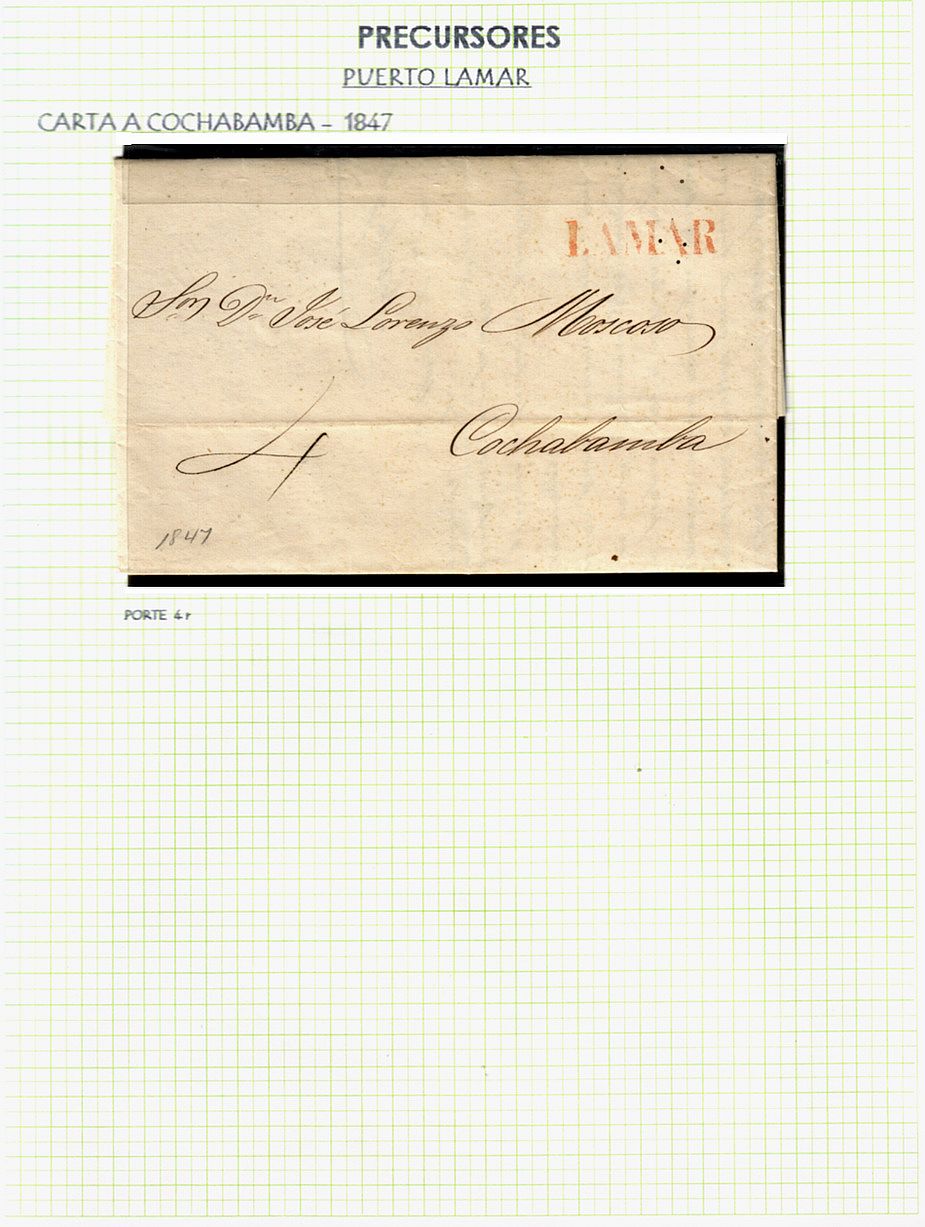 PRECURSORES
PUERTO LAMAR
CARTA A COCHABAMBA - 1847
LAMAR
Sor Dn José Lorenzo Moscoso
Cochabamba
4
1847
PORTE 4 r